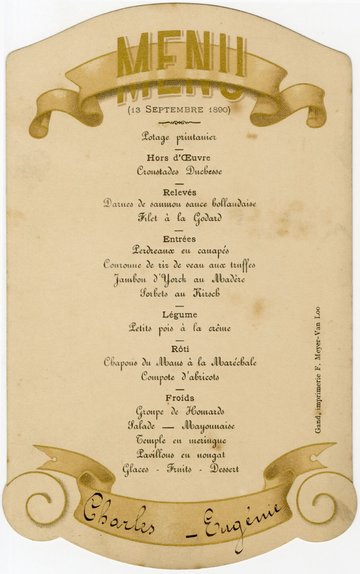 MENU
(13 SEPTEMBRE 1890)
Potage printanier
Hors d'Œuvre
Croustades Duchesse
Relevés
Darnes de saumon sauce hollandaise
Filet à la Godard
Entrées
Perdreaux en canapés
Couronne de riz de veau aux truffes
Jambon d'Yorck au Madère
Sorbets au Kirsch
Légume
Petits pois à la crême
Rôti
Chapons du Mans à la Maréchale
Compote d'abricots
Froids
Groupe de Homards
Salade — Mayonnaise
Temple en meringue
Pavillons en nougat
Glaces - Fruits - Dessert
Charles - Eugénie
Gand, imprimerie F. Meyer-Van Loo